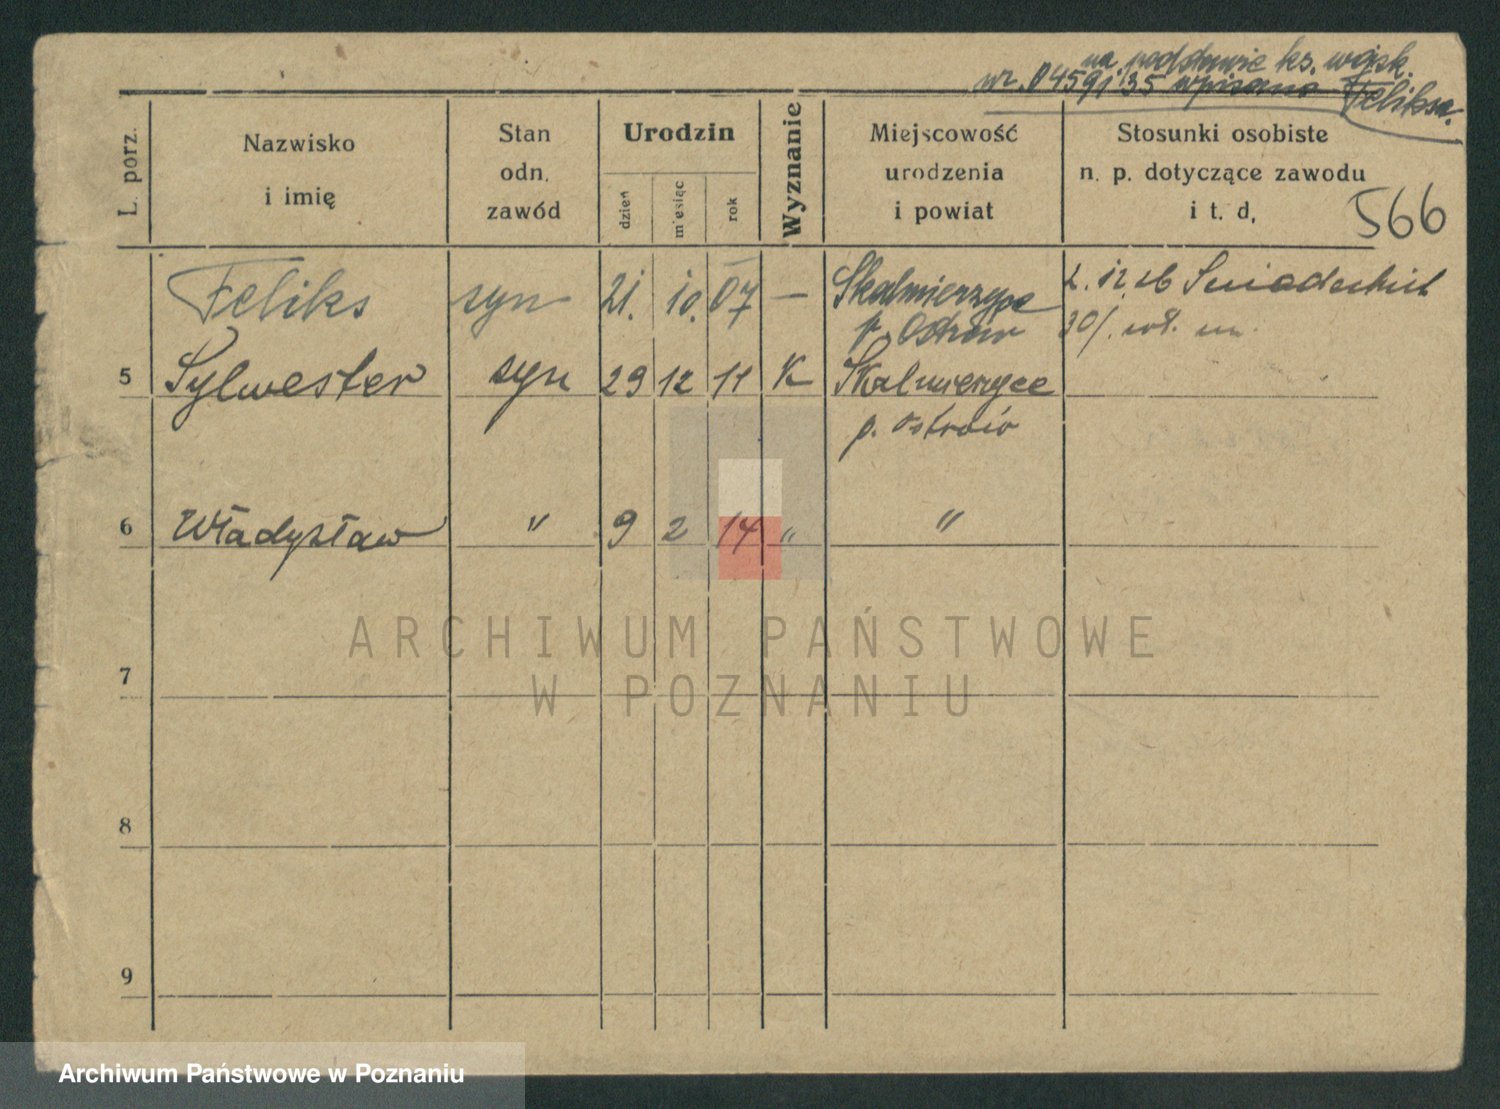 na podstawie ks. wojsk.
nr. 04591/35 wpisano Feliksa.
L. porz.
Nazwisko
i imię
Stan
odn.
zawód
Urodzin
dzień
miesiąc
rok
Wyznanie
Miejscowość
urodzenia
i powiat
Stosunki osobiste
n. p. dotyczące zawodu
i t. d.
566
Feliks syn 21. 10. 07 — Skalmierzyce 2. 12. 26 Śniadeckich
p. Ostrów 30/.
5 Sylwester syn 29 12 11 K Skalmierzyce
p. Ostrów
6 Władysław " 9 2 14 " "
ARCHIWUM PAŃSTWOWE
W POZNANIU
7
8
9
Archiwum Państwowe w Poznaniu